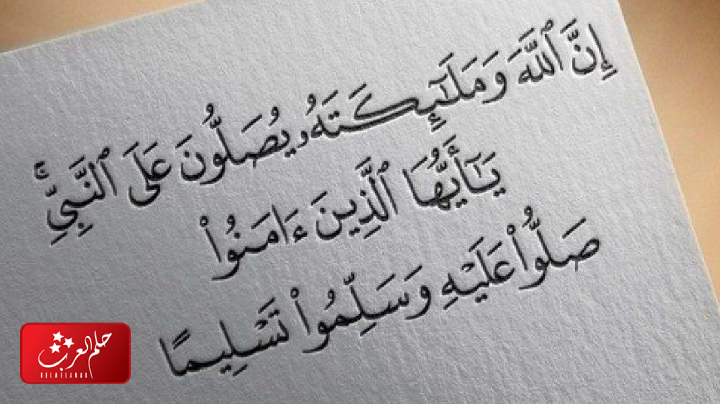 إِنَّ ٱللَّهَ وَمَلَـٰٓئِكَتَهُۥ يُصَلُّونَ عَلَى ٱلنَّبِىِّ ۚ
يَـٰٓأَيُّهَا ٱلَّذِينَ ءَامَنُوا۟
صَلُّوا۟ عَلَيْهِ وَسَلِّمُوا۟ تَسْلِيمًا
حلم العرب